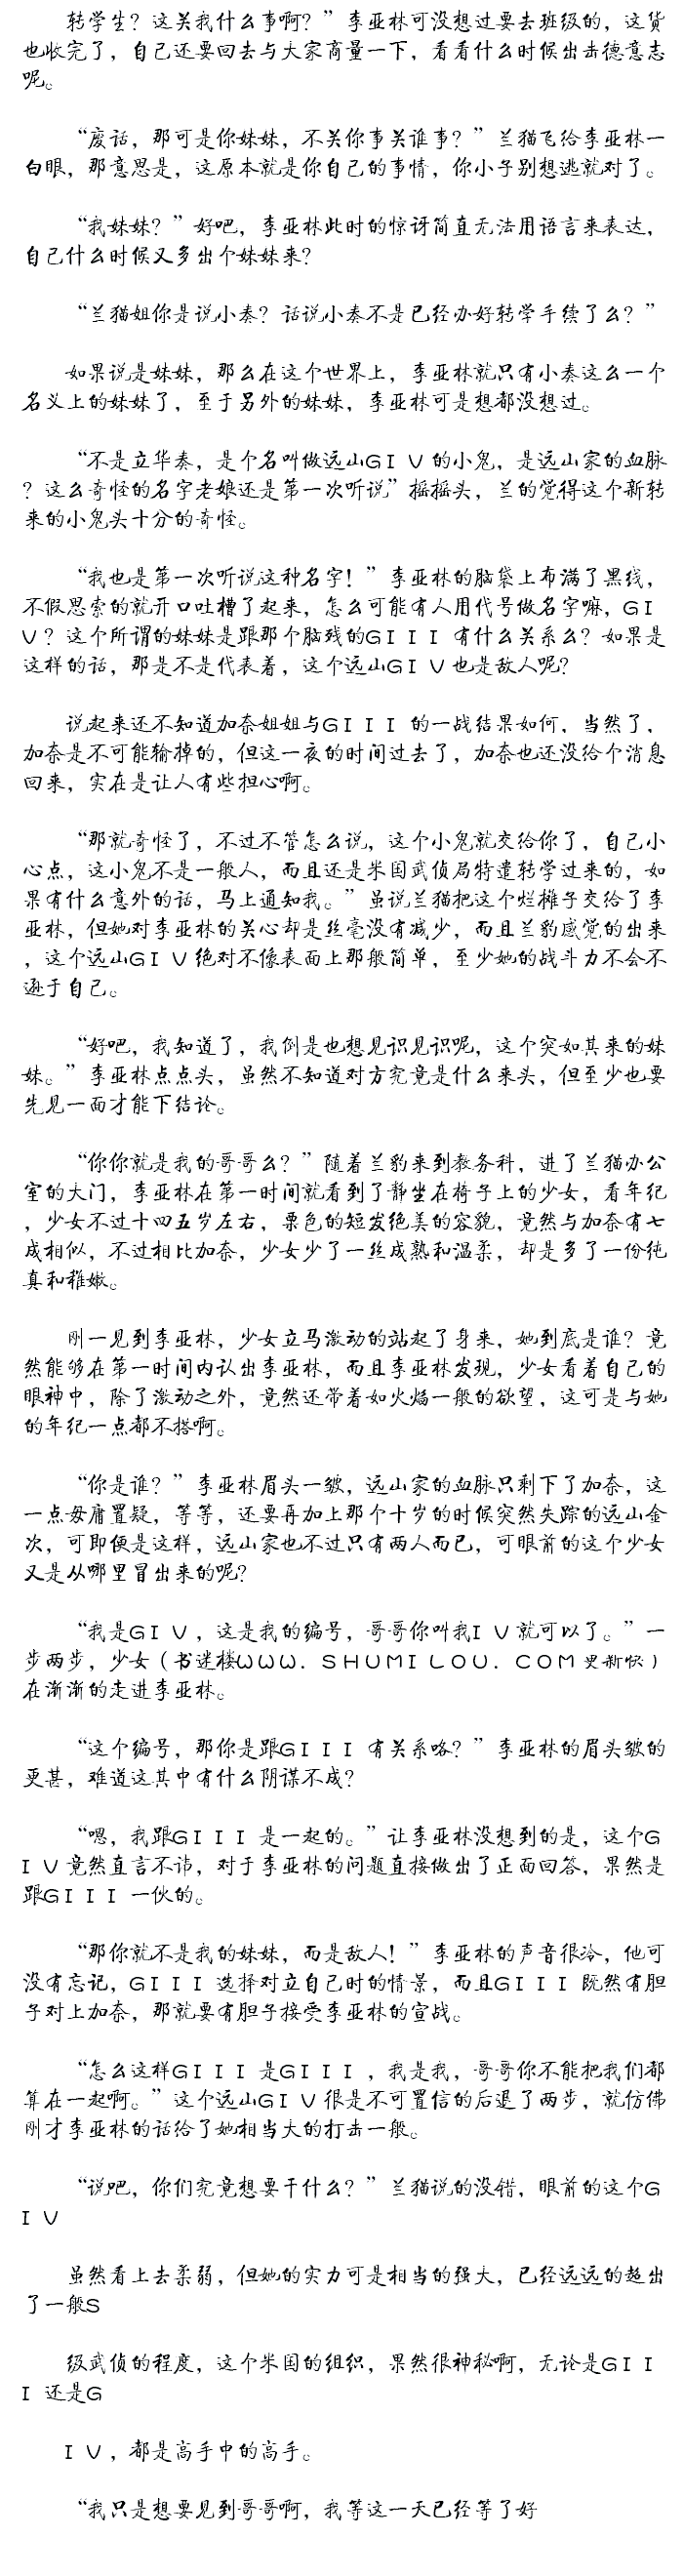 转学生？这关我什么事啊？”李亚林可没想过要去班级的，这货
也收完了，自己还要回去与大家商量一下，看看什么时候出击德意志
呢。
“废话，那可是你妹妹，不关你事关谁事？”兰猫飞给李亚林一
白眼，那意思是，这原本就是你自己的事情，你小子别想逃就对了。
“我妹妹？”好吧，李亚林此时的惊讶简直无法用语言来表达，
自己什么时候又多出个妹妹来？
“兰猫姐你是说小奏？话说小奏不是已经办好转学手续了么？”
如果说是妹妹，那么在这个世界上，李亚林就只有小奏这么一个
名义上的妹妹了，至于另外的妹妹，李亚林可是想都没想过。
“不是立华奏，是个名叫做远山GIV的小鬼，是远山家的血脉
？这么奇怪的名字老娘还是第一次听说”摇摇头，兰的觉得这个新转
来的小鬼头十分的奇怪。
“我也是第一次听说这种名字！”李亚林的脑袋上布满了黑线，
不假思索的就开口吐槽了起来，怎么可能有人用代号做名字嘛，GI
V？这个所谓的妹妹是跟那个脑残的GIII有什么关系么？如果是
这样的话，那是不是代表着，这个远山GIV也是敌人呢？
说起来还不知道加奈姐姐与GIII的一战结果如何，当然了，
加奈是不可能输掉的，但这一夜的时间过去了，加奈也还没给个消息
回来，实在是让人有些担心啊。
“那就奇怪了，不过不管怎么说，这个小鬼就交给你了，自己小
心点，这小鬼不是一般人，而且还是米国武侦局特遣转学过来的，如
果有什么意外的话，马上通知我。”虽说兰猫把这个烂摊子交给了李
亚林，但她对李亚林的关心却是丝毫没有减少，而且兰豹感觉的出来
，这个远山GIV绝对不像表面上那般简单，至少她的战斗力不会不
逊于自己。
“好吧，我知道了，我倒是也想见识见识呢，这个突如其来的妹
妹。”李亚林点点头，虽然不知道对方究竟是什么来头，但至少也要
先见一面才能下结论。
“你你就是我的哥哥么？”随着兰豹来到教务科，进了兰猫办公
室的大门，李亚林在第一时间就看到了静坐在椅子上的少女，看年纪
，少女不过十四五岁左右，栗色的短发绝美的容貌，竟然与加奈有七
成相似，不过相比加奈，少女少了一丝成熟和温柔，却是多了一份纯
真和稚嫩。
刚一见到李亚林，少女立马激动的站起了身来，她到底是谁？竟
然能够在第一时间内认出李亚林，而且李亚林发现，少女看着自己的
眼神中，除了激动之外，竟然还带着如火焰一般的欲望，这可是与她
的年纪一点都不搭啊。
“你是谁？”李亚林眉头一皱，远山家的血脉只剩下了加奈，这
一点毋庸置疑，等等，还要再加上那个十岁的时候突然失踪的远山金
次，可即便是这样，远山家也不过只有两人而已，可眼前的这个少女
又是从哪里冒出来的呢？
“我是GIV，这是我的编号，哥哥你叫我IV就可以了。”一
步两步，少女（书迷楼WWW．SHUMILOU．COM更新快）
在渐渐的走进李亚林。
“这个编号，那你是跟GIII有关系咯？”李亚林的眉头皱的
更甚，难道这其中有什么阴谋不成？
“嗯，我跟GIII是一起的。”让李亚林没想到的是，这个G
IV竟然直言不讳，对于李亚林的问题直接做出了正面回答，果然是
跟GIII一伙的。
“那你就不是我的妹妹，而是敌人！”李亚林的声音很冷，他可
没有忘记，GIII选择对立自己时的情景，而且GIII既然有胆
子对上加奈，那就要有胆子接受李亚林的宣战。
“怎么这样GIII是GIII，我是我，哥哥你不能把我们都
算在一起啊。”这个远山GIV很是不可置信的后退了两步，就仿佛
刚才李亚林的话给了她相当大的打击一般。
“说吧，你们究竟想要干什么？”兰猫说的没错，眼前的这个G
IV
虽然看上去柔弱，但她的实力可是相当的强大，已经远远的超出
了一般S
级武侦的程度，这个米国的组织，果然很神秘啊，无论是GII
I还是G
IV，都是高手中的高手。
“我只是想要见到哥哥啊，我等这一天已经等了好